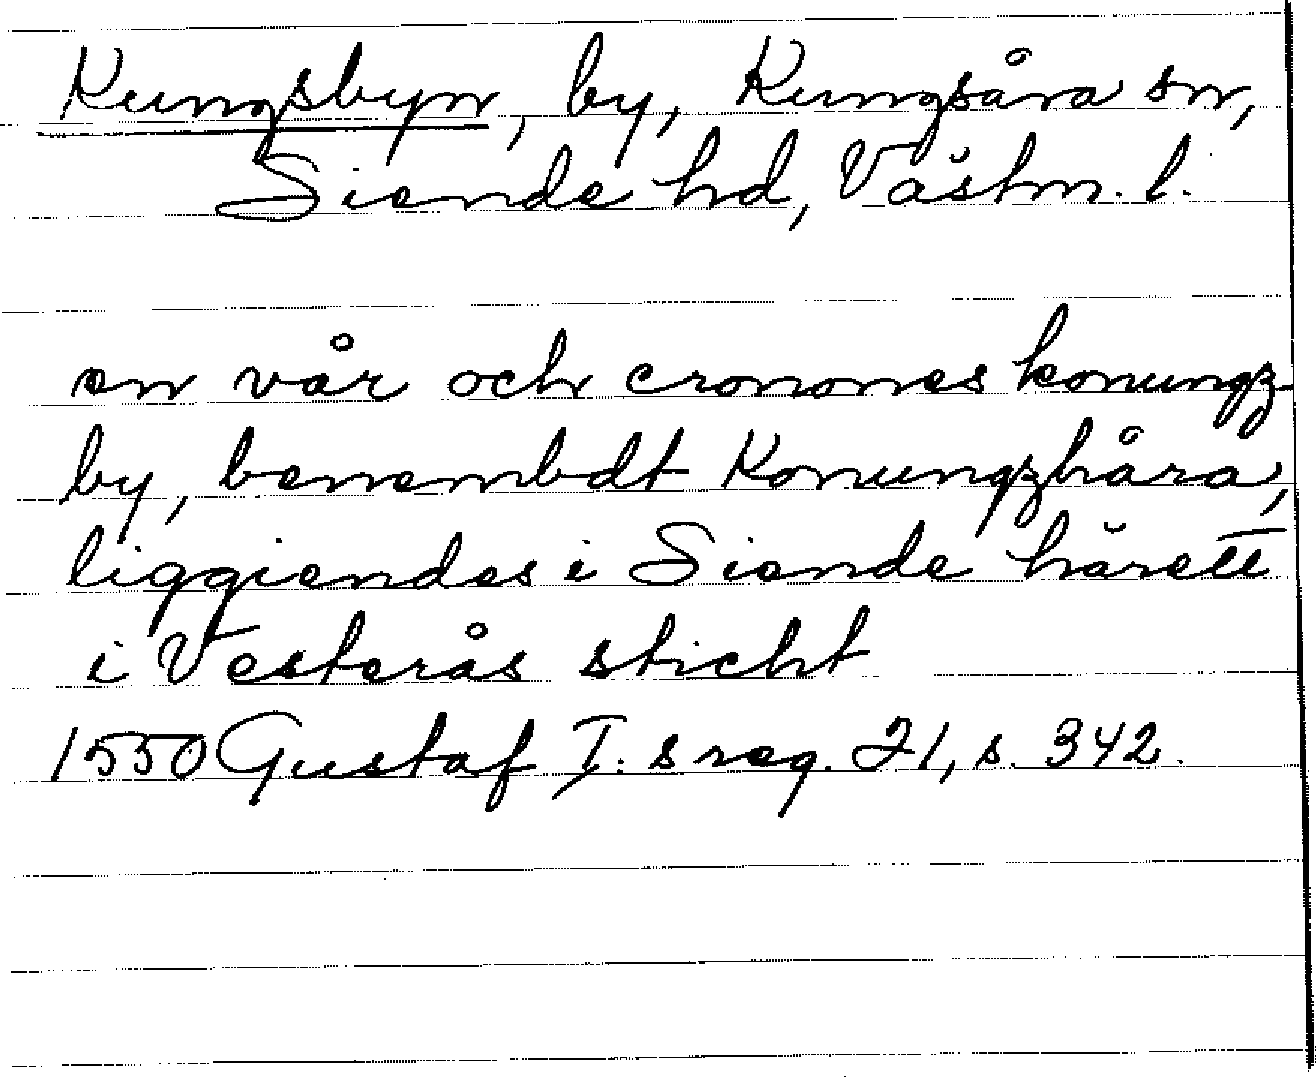 Kungsbyn, by, Kungsåra sn,
Siende hd, Västm. l.
en vår och cronones konungz
by, benembdt Konungzhåra,
liggiendes i Siende härett
i Vesterås sticht
1550 Gustaf I:s reg. 21, s. 342.